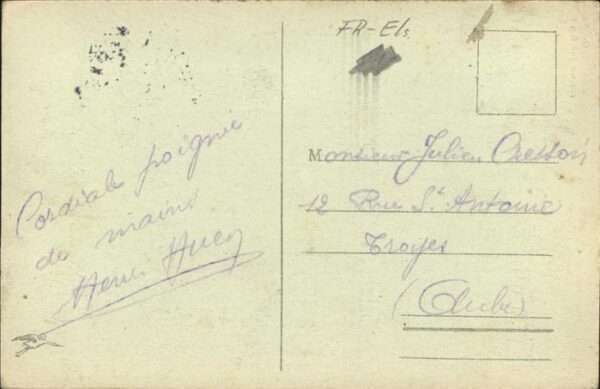 Cordiale poignée
de mains
Henri
FR-Els
Monsieur Julien Cresson
12 Rue St. Antoine
Troyes
(Aube)